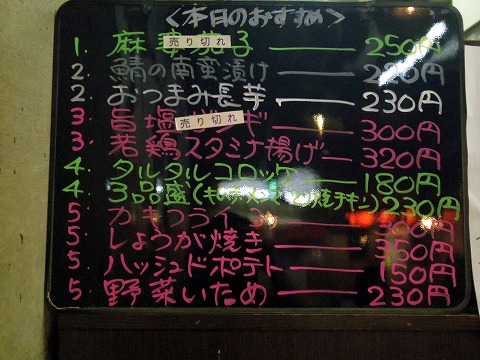 <本日のおすすめ>
1. 麻婆茄子 売り切れ 250円
2. 鯖の南蛮漬け 220円
2. おつまみ長芋 230円
3. 旨塩 売り切れ ンギ 300円
3. 若鶏スタミナ揚げ 320円
4. タルタルコロッケ 180円
4. 3品盛 230円
5. カキフライ 300円
5. しょうが焼き 350円
5. ハッシュドポテト 150円
5. 野菜いため 230円